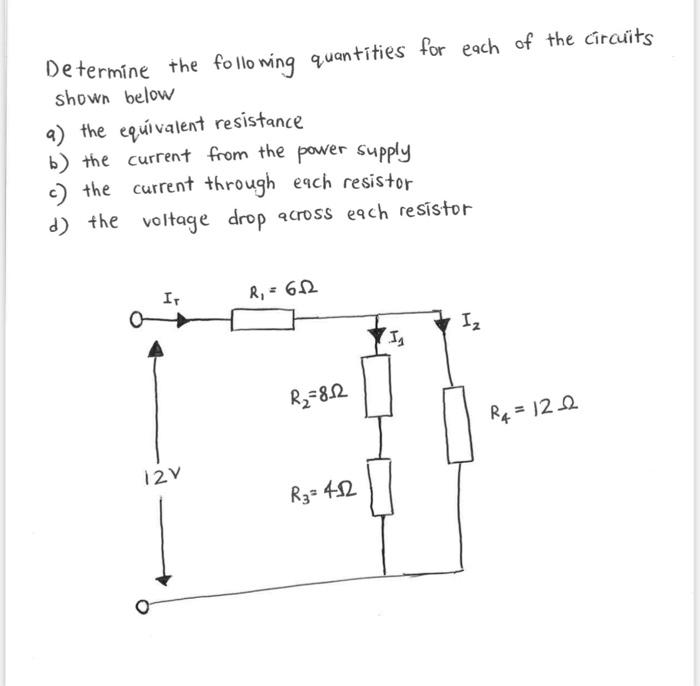 Determine the following quantities for each of the circuits
shown below
a) the equivalent resistance
b) the current from the power supply
c) the current through each resistor
d) the voltage drop across each resistor
I_T
R₁ = 6Ω
I₁
I₂
R₂=8Ω
R₄ = 12Ω
12V
R₃= 4Ω